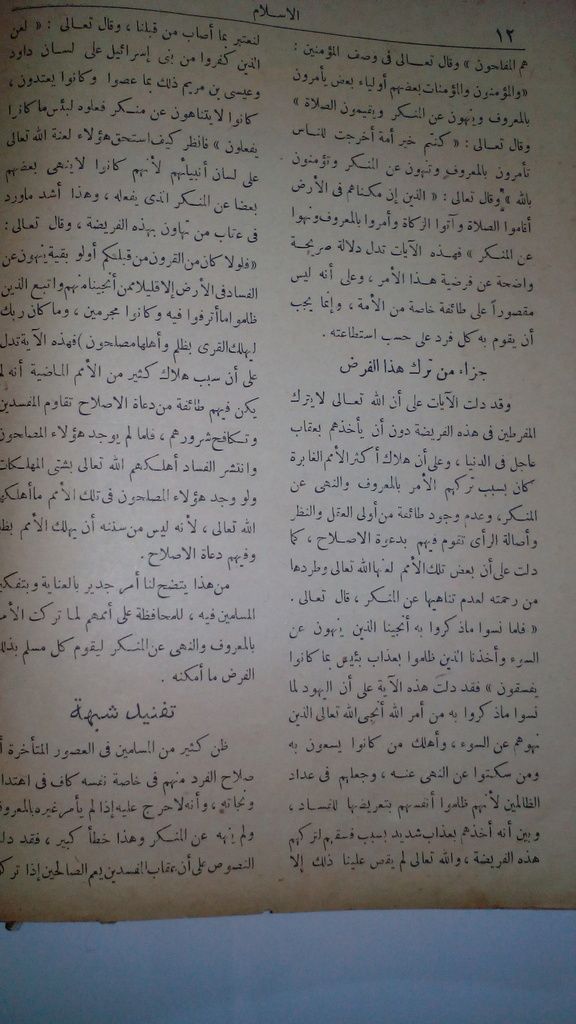 الاسلام
١٢
هم المفلحون » وقال تعالى فى وصف المؤمنين :
«والمؤمنون والمؤمنات بعضهم أولياء بعض يأمرون
بالمعروف وينهون عن المنكر ويقيمون الصلاة »
وقال تعالى : « كنتم خير أمة أخرجت للناس
تأمرون بالمعروف وتنهون عن المنكر وتؤمنون
بالله » وقال تعالى : « الذين إن مكناهم فى الأرض
أقاموا الصلاة وآتوا الزكاة وأمروا بالمعروف ونهوا
عن المنكر » فهذه الآيات تدل دلالة صريحة
واضحة عن فرضية هذا الأمر ، وعلى أنه ليس
مقصوراً على طائفة خاصة من الأمة ، وإنما يجب
أن يقوم به كل فرد على حسب استطاعته .
جزاء من ترك هذا الفرض
وقد دلت الآيات على أن الله تعالى لا يترك
المفرطين فى هذه الفريضة دون أن يأخذهم بعقاب
عاجل فى الدنيا ، وعلى أن هلاك أكثر الأمم الغابرة
كان بسبب تركهم الأمر بالمعروف والنهى عن
المنكر، وعدم وجود طائفة من أولى العقل والنظر
وأصالة الرأى تقوم فيهم بدعوة الاصلاح ، كما
دلت على أن بعض تلك الأمم لعنها الله تعالى وطردها
من رحمته لعدم تناهيها عن المنكر ، قال تعالى .
« فلما نسوا ماذكروا به أنجينا الذين ينهون عن
السوء وأخذنا الذين ظلموا بعذاب بئيس بما كانوا
يفسقون » فقد دلت هذه الآية على أن اليهود لما
نسوا ماذكروا به من أمر الله أنجى الله تعالى الذين
نهوهم عن السوء ، وأهلك من كانوا يسعون به
ومن سكتوا عن النهى عنه ، وجعلهم فى عداد
الظالمين لأنهم ظلموا أنفسهم بتعريضها للفساد ،
وبين أنه أخذهم بعذاب شديد بسبب فسقهم لتركهم
هذه الفريضة ، والله تعالى لم يقص علينا ذلك إلا
لنعتبر بما أصاب من قبلنا ، وقال تعالى : « لعن
الذين كفروا من بنى إسرائيل على لسان داود
وعيسى بن مريم ذلك بما عصوا وكانوا يعتدون ،
كانوا لا يتناهون عن منكر فعلوه لبئس ما كانوا
يفعلون » فانظر كيف استحق هؤلاء لعنة الله تعالى
على لسان أنبيائهم لأنهم كانوا لا ينهى بعضهم
بعضا عن المنكر الذى يفعله ، وهذا أشد ماورد
فى عتاب من تهاون بهذه الفريضة ، وقال تعالى :
«فلولا كان من القرون من قبلكم أولو بقية ينهون عن
الفساد فى الأرض إلا قليلا ممن أنجينا منهم واتبع الذين
ظلموا ما أترفوا فيه وكانوا مجرمين ، وما كان ربك
ليهلك القرى بظلم وأهلها مصلحون ) فهذه الآية تدل
على أن سبب هلاك كثير من الأمم الماضية أنه لم
يكن فيهم طائفة من دعاة الاصلاح تقاوم المفسدين
وتكافح شرورهم ، فلما لم يوجد هؤلاء المصلحون
وانتشر الفساد أهلكهم الله تعالى بشتى المهلكات
ولو وجد هؤلاء المصلحون فى تلك الأمم ما أهلكها
الله تعالى ، لأنه ليس من سنته أن يهلك الأمم بظلم
وفيهم دعاة الاصلاح .
من هذا يتضح لنا أمر جدير بالعناية وبتفكير
المسلمين فيه ، للمحافظة على أممهم لما تركت الأمر
بالمعروف والنهى عن المنكر ليقوم كل مسلم بذلك
الفرض ما أمكنه .
تفنيد شبهة
ظن كثير من المسلمين فى العصور المتأخرة أن
صلاح الفرد منهم فى خاصة نفسه كاف فى اهتدائه
ونجاته ، وأنه لاحرج عليه إذا لم يأمر غيره بالمعروف
ولم ينهه عن المنكر وهذا خطأ كبير ، فقد دلت
النصوص على أن عقاب المفسدين يعم الصالحين إذا تركوا